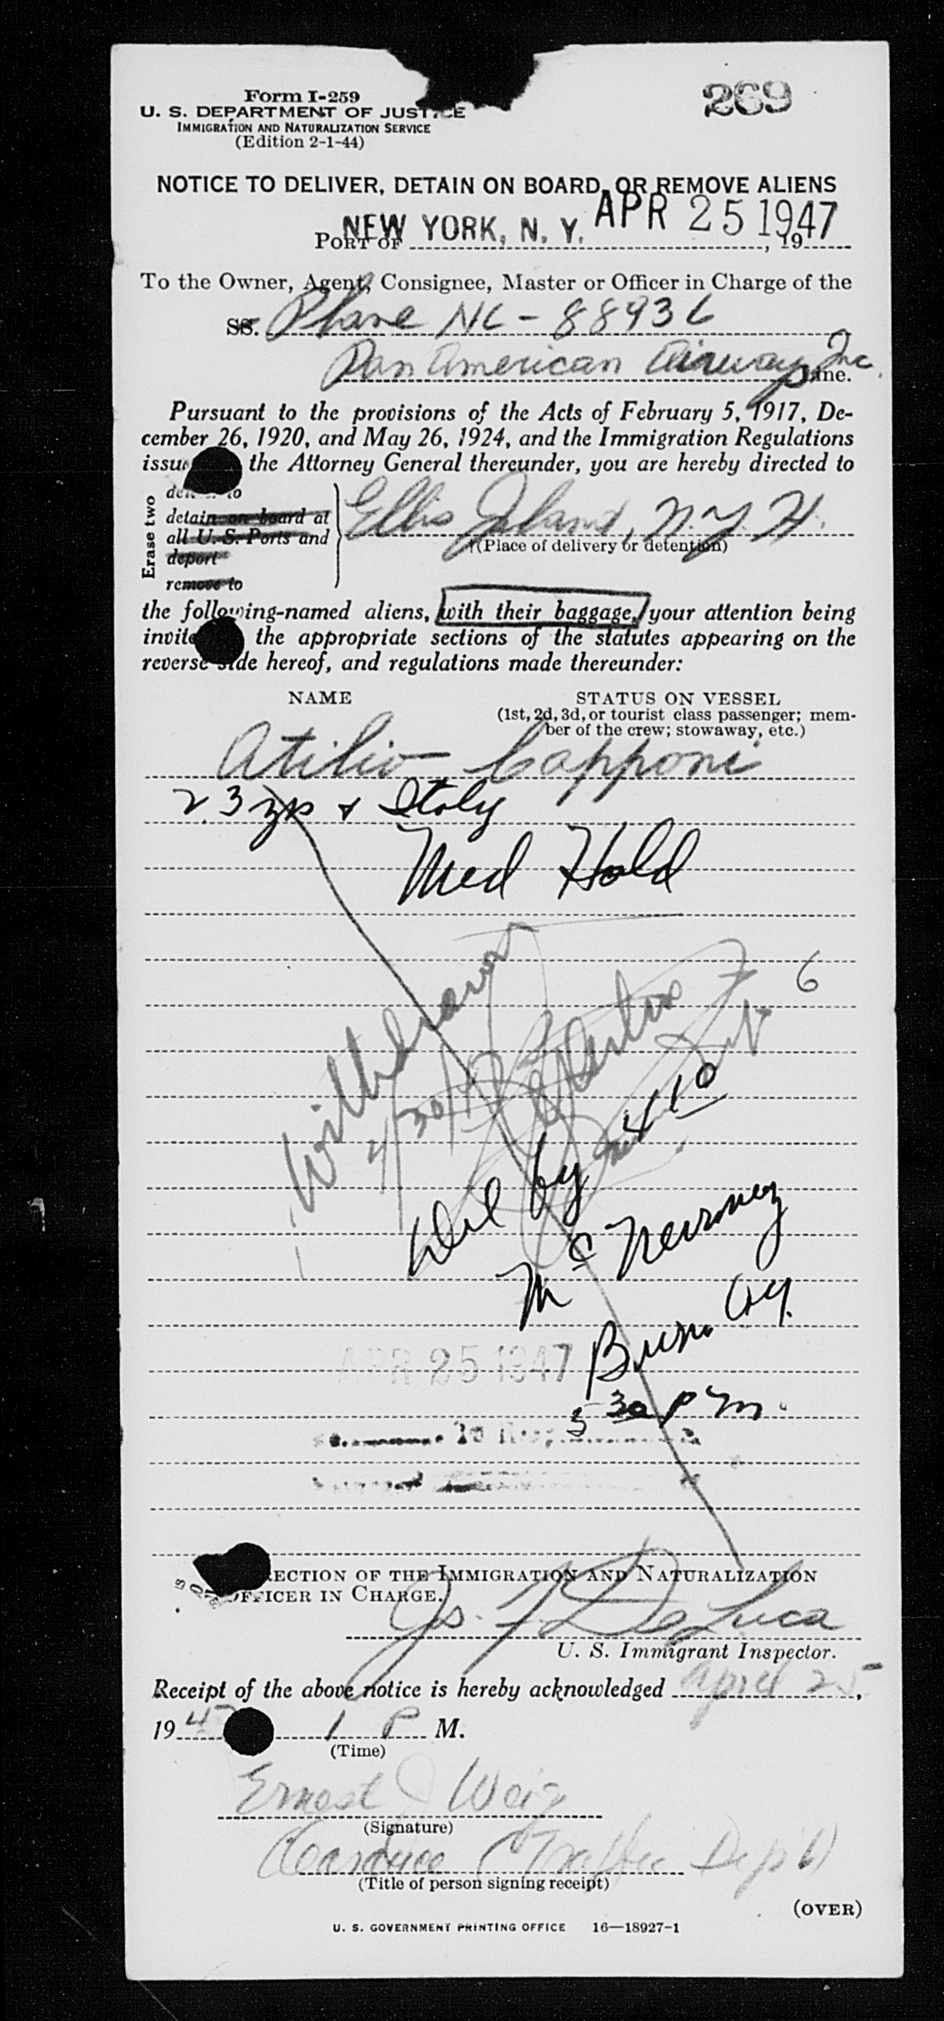 Form I-259
269
U. S. DEPARTMENT OF JUSTICE
IMMIGRATION AND NATURALIZATION SERVICE
(Edition 2-1-44)
NOTICE TO DELIVER, DETAIN ON BOARD, OR REMOVE ALIENS
PORT OF NEW YORK, N. Y. APR 25 1947, 19
To the Owner, Agent, Consignee, Master or Officer in Charge of the
SS. Plane NC-88936
Pan American Airways, Inc. Line.
Pursuant to the provisions of the Acts of February 5, 1917, De-
cember 26, 1920, and May 26, 1924, and the Immigration Regulations
issu the Attorney General thereunder, you are hereby directed to
Erase two
to
detain on board at
all U. S. Ports and
deport
remove to
Ellis Island, N.Y.H.
(Place of delivery or detention)
the following-named aliens, with their baggage, your attention being
invite the appropriate sections of the statutes appearing on the
reverse side hereof, and regulations made thereunder:
NAME
STATUS ON VESSEL
(1st, 2d, 3d, or tourist class passenger; mem-
ber of the crew; stowaway, etc.)
Atilio Capponi
23 Italy
Med Hold
6
Withdrawn
4/30/47
Del by
McNerney
5 30 PM.
APR 25 1947
ECTION OF THE IMMIGRATION AND NATURALIZATION
OFFICER IN CHARGE.
Js. F. DeLuca
U. S. Immigrant Inspector.
Receipt of the above notice is hereby acknowledged April 25,
1947 1 P M.
(Time)
Ernest J Weig
(Signature)
Traffic Dep't
(Title of person signing receipt)
(OVER)
U. S. GOVERNMENT PRINTING OFFICE 16—18927-1